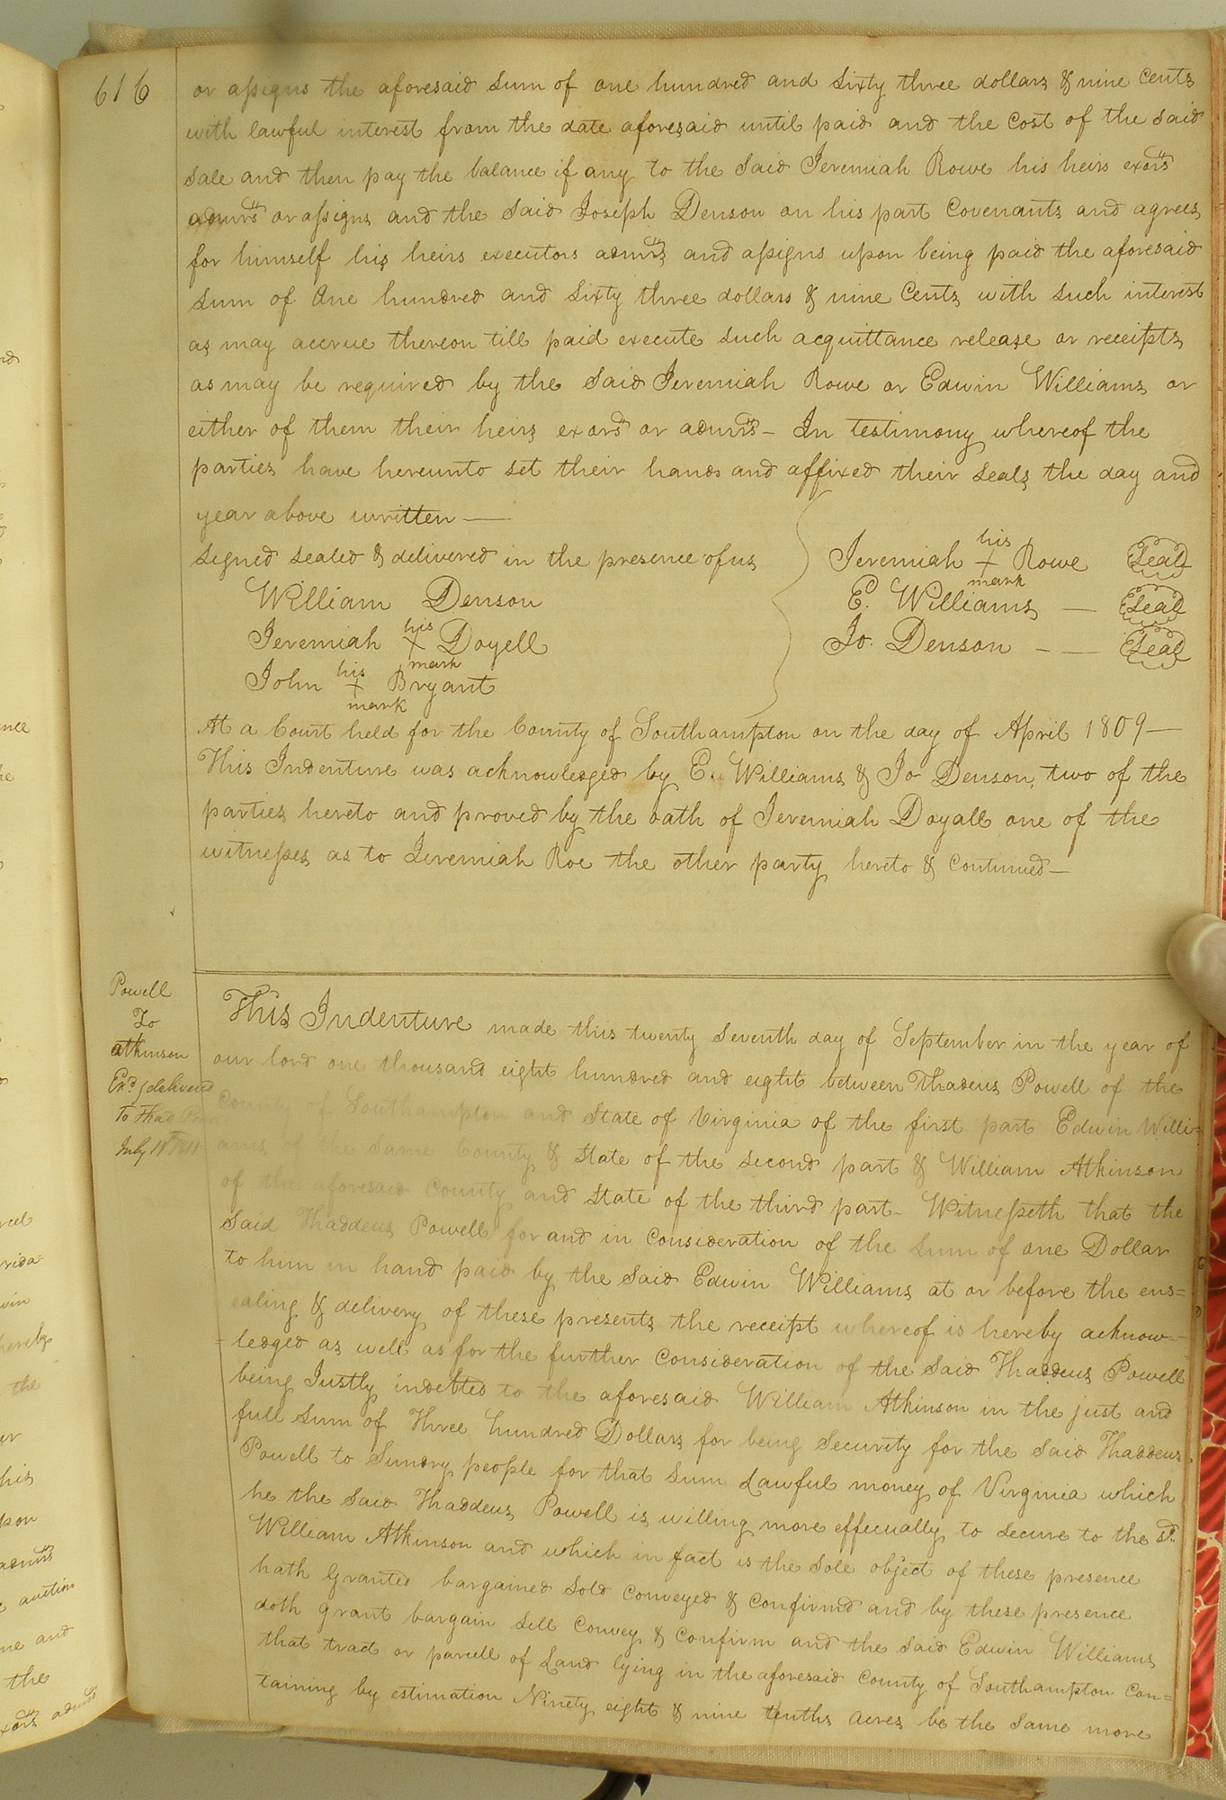 616
or assigns the aforesaid sum of one hundred and sixty three dollars & nine Cents
with lawful interest from the date aforesaid until paid and the Cost of the said
sale and then pay the balance if any to the said Jeremiah Rowe his heirs exors
admrs or assigns and the said Joseph Denson on his part Covenants and agrees
for himself his heirs executors admrs and assigns upon being paid the aforesaid
sum of One hundred and sixty three dollars & nine Cents with such interest
as may accrue thereon till paid execute such acquittance release or receipts
as may be required by the said Jeremiah Rowe or Edwin Williams or
either of them their heirs exors or admrs – In testimony whereof the
parties have hereunto set their hands and affixed their seals the day and
year above written —
signed sealed & delivered in the presence of us
William Denson
Jeremiah his X mark Doyell
John his + mark Bryant
Jeremiah his + mark Rowe Seal
E. Williams — Seal
Jo. Denson – — Seal
At a Court held for the County of Southampton on the day of April 1809 —
This Indenture was acknowledged by E. Williams & Jo Denson, two of the
parties hereto and proved by the oath of Jeremiah Doyall one of the
witnesses as to Jeremiah Roe the other party hereto & Continued —
Powell
To
Atkinson
Exd & delivered
To Thad
July 18th
This Indenture made this twenty seventh day of September in the year of
our lord one thousand eight hundred and eight between Thadeus Powell of the
County of Southampton and State of Virginia of the first part Edwin Willi-
ams of the same County & State of the second part & William Atkinson
of the aforesaid County and State of the third part – Witnesseth that the
said Thaddeus Powell for and in Consideration of the sum of one Dollar
to him in hand paid by the said Edwin Williams at or before the ens=
ealing & delivery of these presents the receipt whereof is hereby acknow=
=ledged as well as for the further Consideration of the said Thaddeus Powell
being Justly indebted to the aforesaid William Atkinson in the just and
full sum of Three hundred Dollars for being security for the said Thaddeus
Powell to Sundry people for that sum Lawful money of Virginia which
he the said Thaddeus Powell is willing more effecually to secure to the sd
William Atkinson and which in fact is the sole object of these presence
hath Granted bargained sold Conveyed & Confirmd and by these presence
doth grant bargain sell Convey & Confirm and the said Edwin Williams
that tract or parcell of Land lying in the aforesaid County of Southampton Con=
taining by estimation Ninety eight & nine tenths acres be the same more